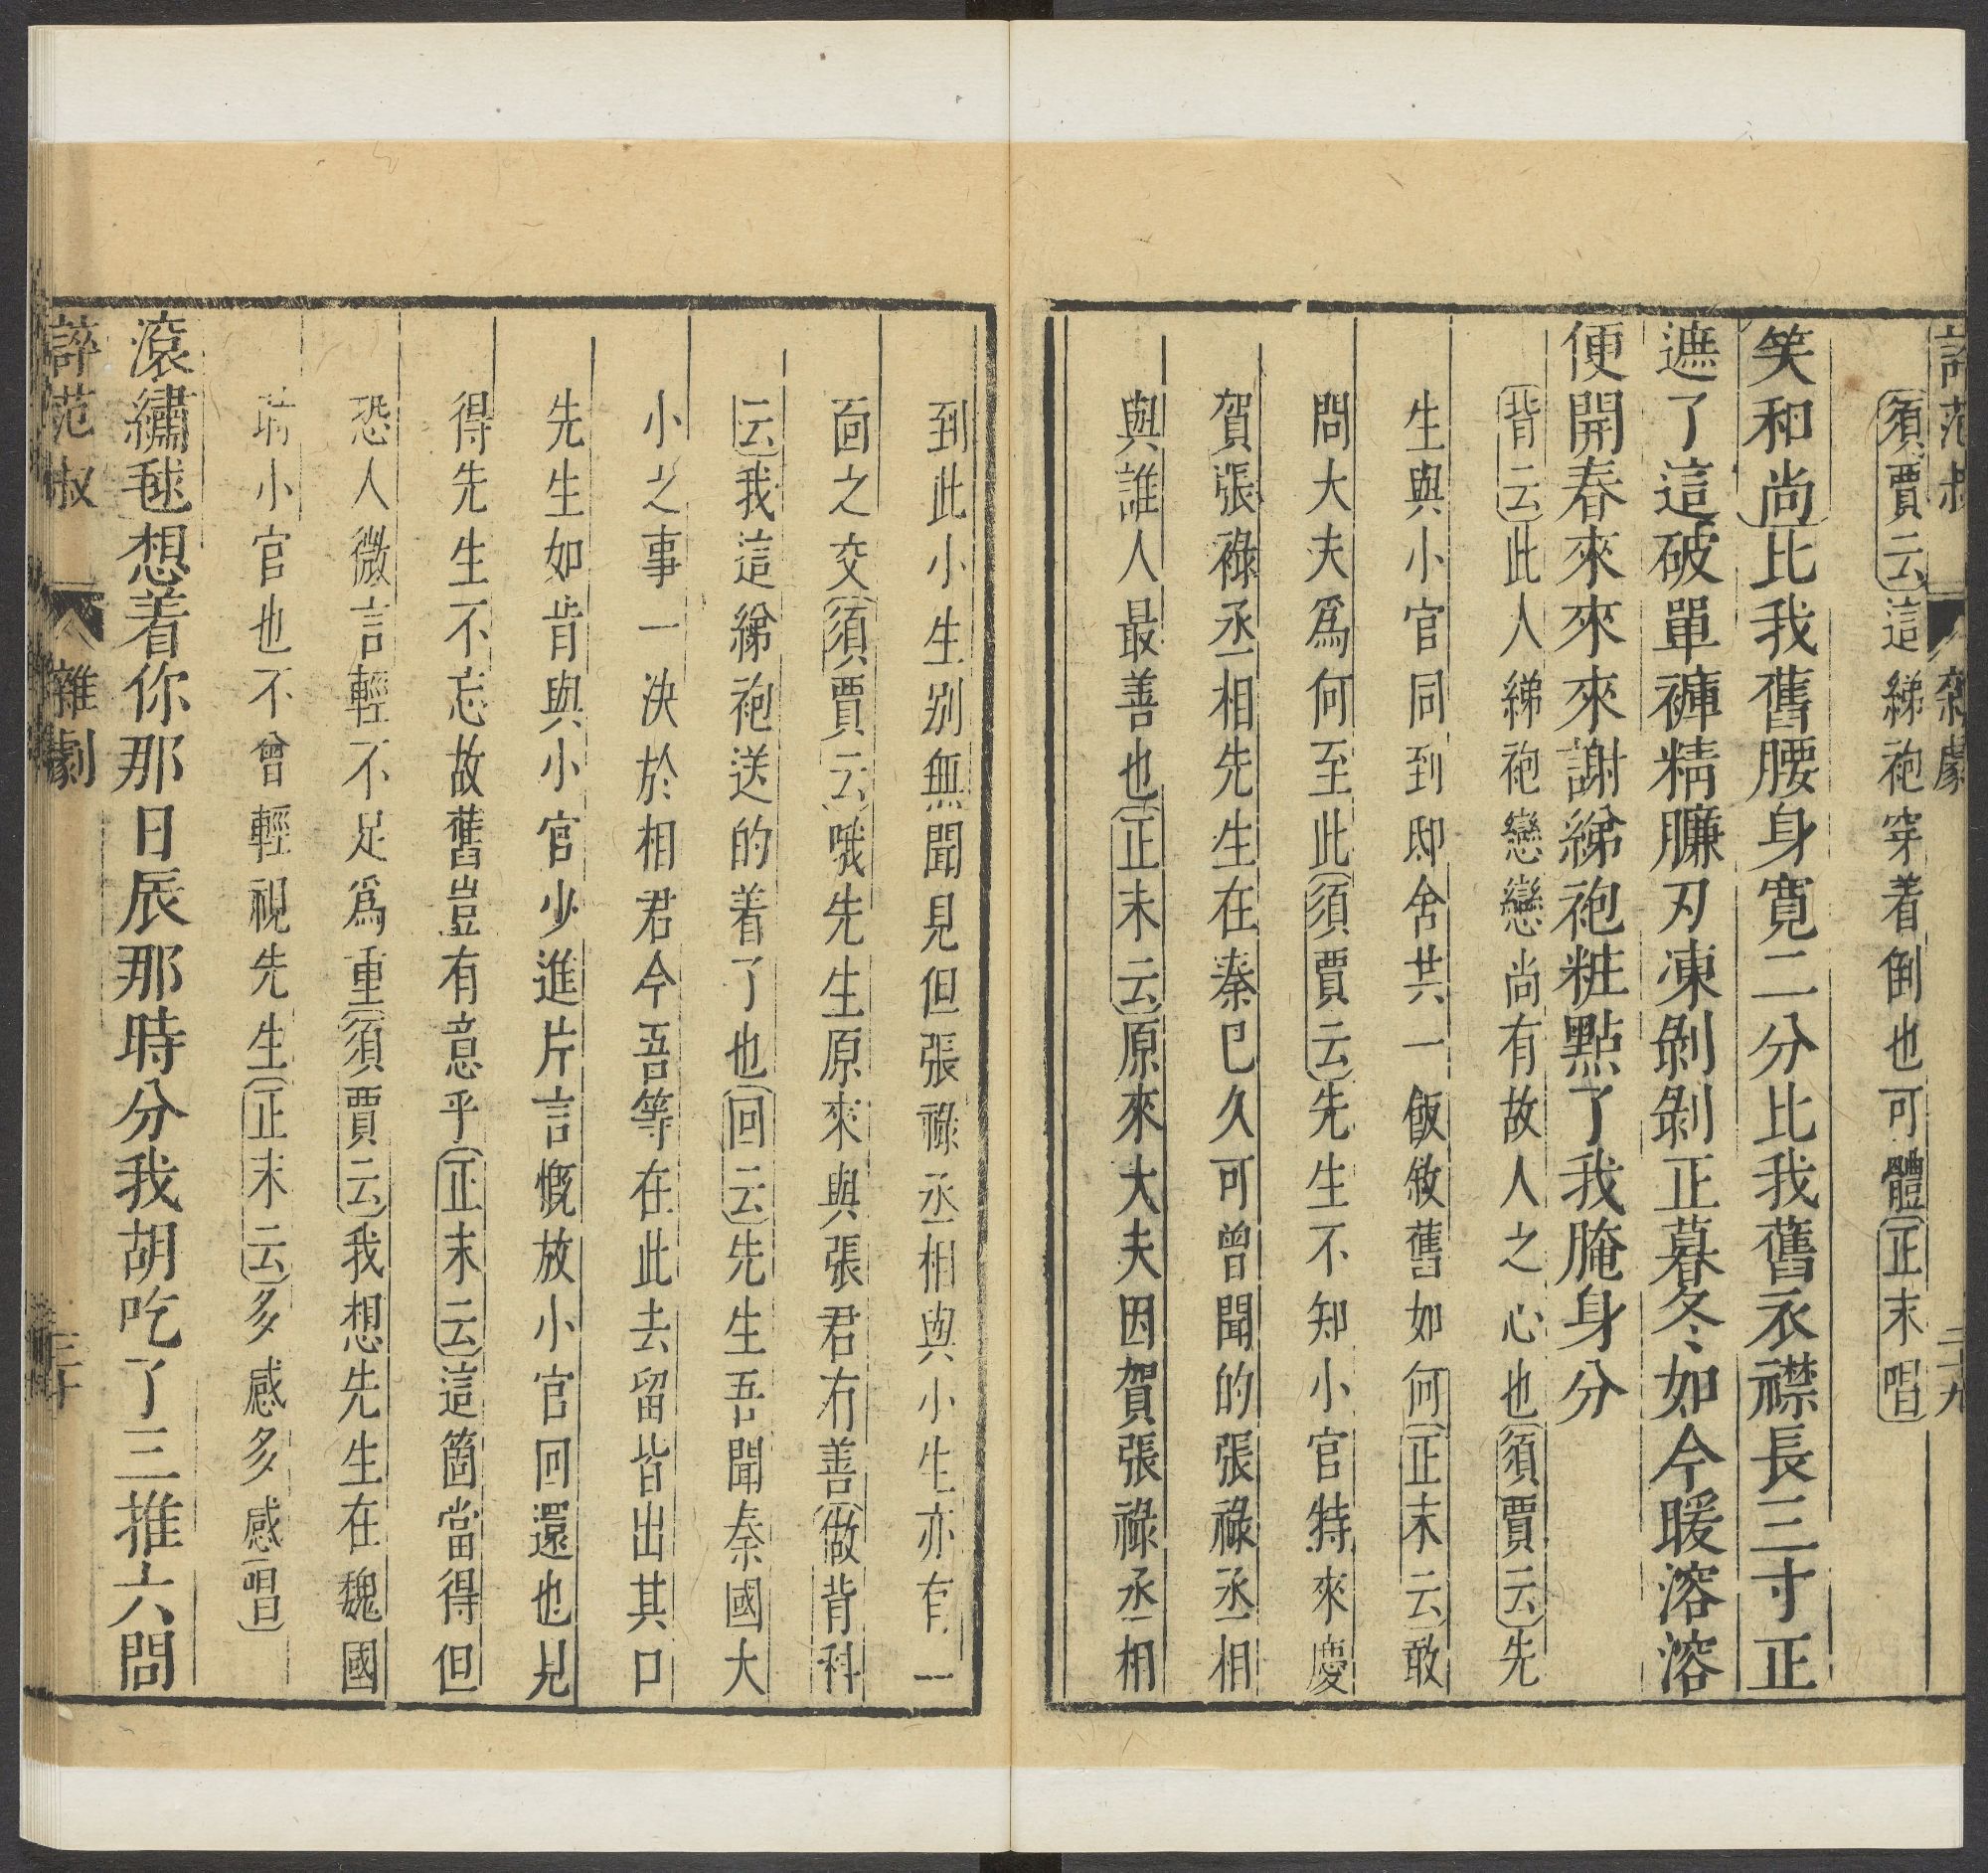 誶范叔 雜劇 二十九
須賈云這綈袍穿着倒也可體正末唱
笑和尚比我舊腰身寛二分比我舊衣襟長三寸正
遮了這破單褲精臁刃凍剝剝正暮冬如今暖溶溶
便開春來來來謝綈袍粧點了我腌身分
背云此人綈袍戀戀尚有故人之心也須賈云先
生與小官同到邸舍共一飯敘舊如何正末云敢
問大夫爲何至此須賈云先生不知小官特來慶
賀張祿丞相先生在秦已久可曾聞的張祿丞相
與誰人最善也正末云原來大夫因賀張祿丞相
到此小生别無聞見但張祿丞相與小生亦有一
面之交須賈云哦先生原來與張君有善做背科
云我這綈袍送的着了也回云先生吾聞秦國大
小之事一決於相君今吾等在此去留皆出其口
先生如肯與小官少進片言慨放小官回還也見
得先生不忘故舊豈有意乎正末云這箇當得但
恐人微言輕不足爲重須賈云我想先生在魏國
時小官也不曾輕視先生正末云多感多感唱
滾繡毬想着你那日辰那時分我胡吃了三推六問
誶范叔 雜劇 三十